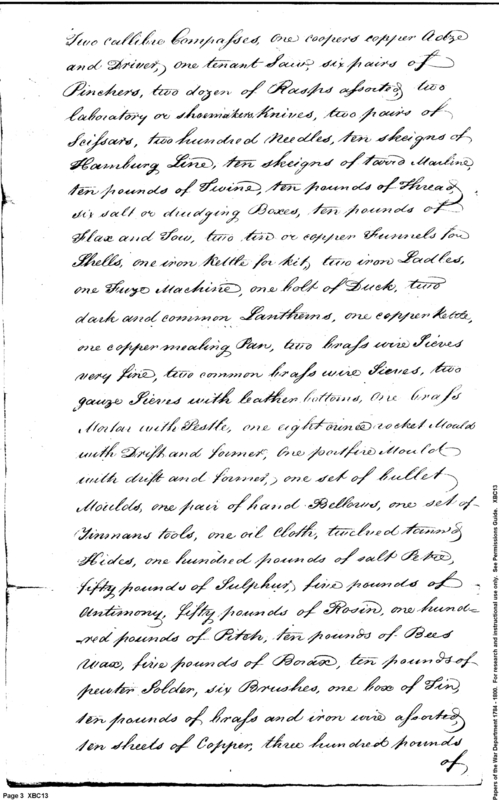 Two callibre Compasses, one coopers copper Adze
and Driver, one tenant Saw, six pairs of
Pinchers, two dozen of Rasps assorted, two
laboratory or shoemakers Knives, two pairs of
Scissars, two hundred Needles, ten skeigns of
Hamburg Line, ten skeigns of tarrd Marline,
ten pounds of Twine, ten pounds of Thread,
six salt or drudging Boxes, ten pounds of
Flax and Tow, two tin or copper Funnels for
Shells, one iron Kettle for kit, two iron Ladles,
one Fuze Machine, one bolt of Duck, two
dark and common Lantherns, one copper kettle,
one copper mealing Pan, two brass wire Sieves
very fine, two common brass wire Sieves, two
gauze Sieves with leather bottoms, one brass
Mortar with Pestle, one eight ounce rocket Mould
with Drift and former, One portfire Mould
with drift and former, one set of bullet
Moulds, one pair of hand Bellows, one set of
Tinmans tools, one oil Cloth, twelve tann'd
Hides, one hundred pounds of salt Petre,
fifty pounds of Sulphur, five pounds of
Antimony, fifty pounds of Rosin, one hund=
=red pounds of Pitch, ten pounds of Bees
Wax, five pounds of Borax, ten pounds of
pewter Solder, six Brushes, one box of Tin,
ten pounds of brass and iron wire assorted,
ten sheets of Copper, three hundred pounds
of
Page 3 XBC13
Papers of the War Department 1784 - 1800. For research and instructional use only. See Permissions Guide. XBC13